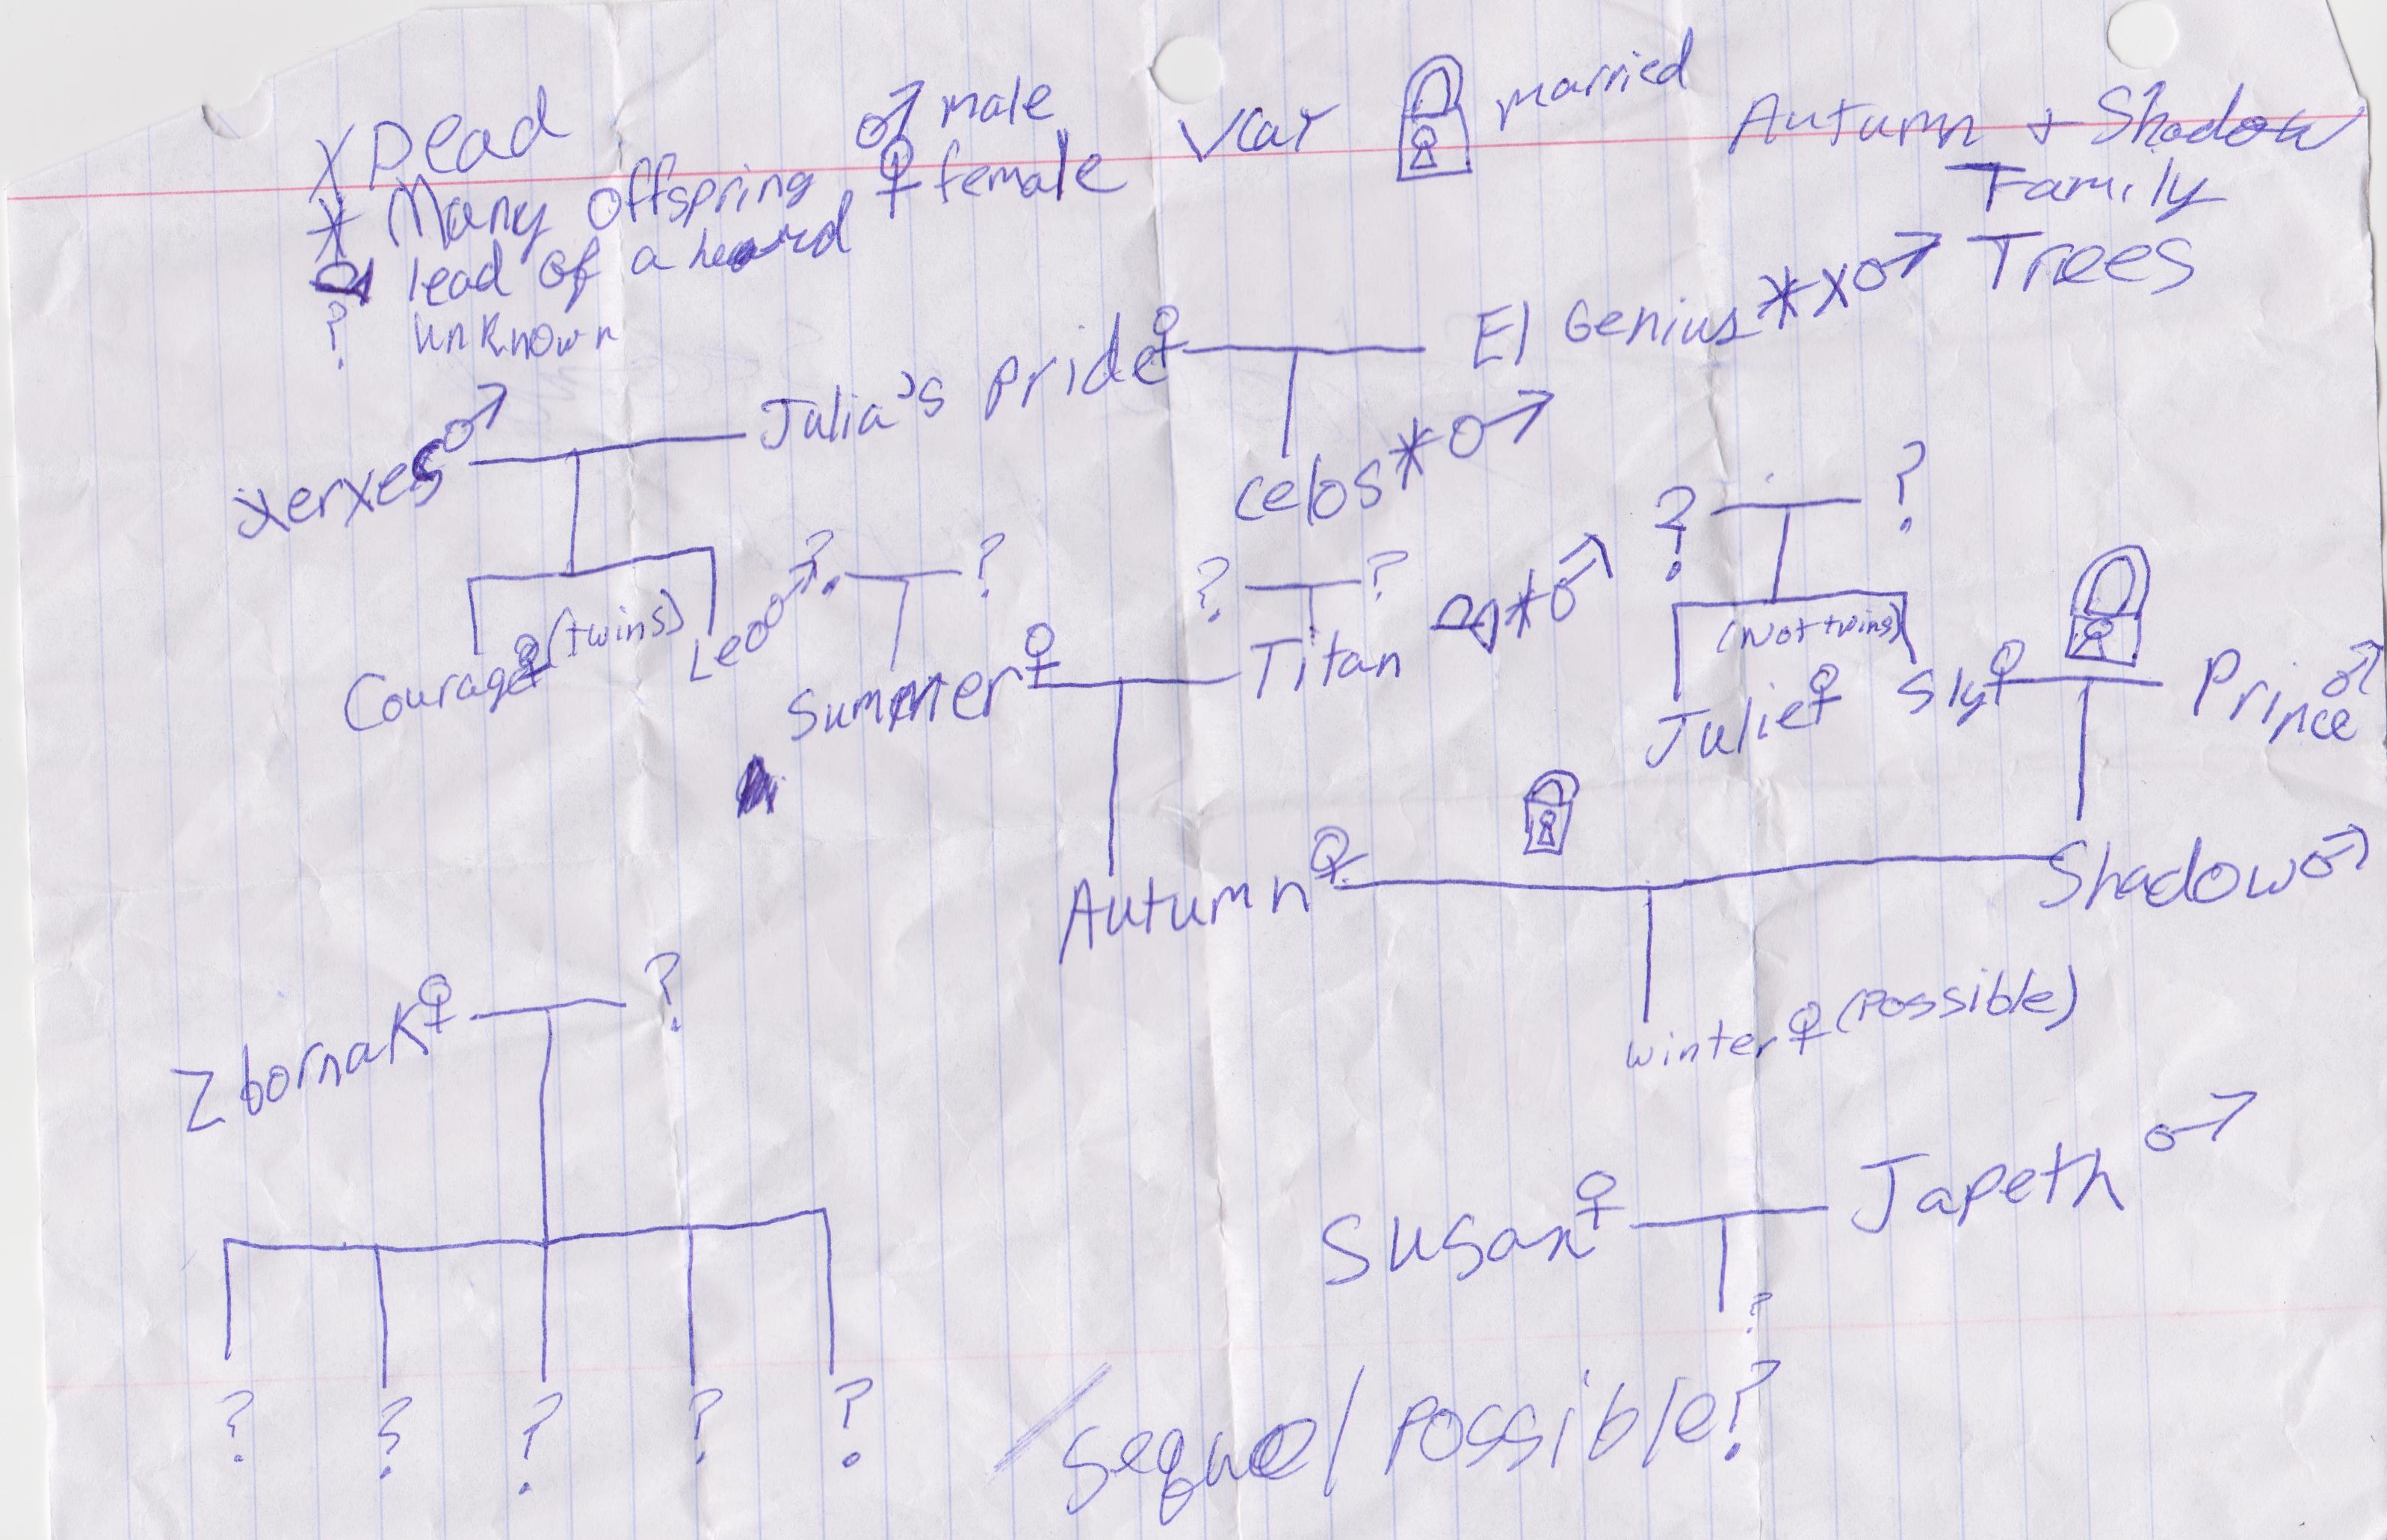 X Dead
* Many offspring
lead of a heard
? unknown
♂ male
♀ female
married
Autumn + Shadow
Family
Trees
Julia's Pride♀
El Genius*X♂
Xerxes♂
Celos*♂
? ?
Courage♀ (twins) Leo♂
? ?
Summer♀
? ?
Titan *♂
(Not twins)
Julie♀ Sly♀ Prince♂
Autumn♀ Shadow♂
Winter♀ (Possible)
Zbornak♀ ?
? ? ? ? ?
Susan♀ Japeth♂
?
Sequel Possible?